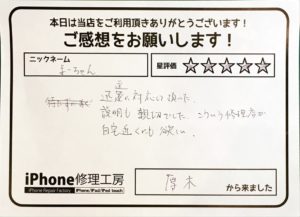 本日は当店をご利用頂きありがとうございます！
ご感想をお願いします！
ニックネーム
よこちゃん
星評価 ☆☆☆☆☆
迅速に対応して頂いた。
説明も親切でした。こういう修理店が
自宅近くにも欲しい。
iPhone修理工房
iPhone Repair Factory iPhone/iPad/iPod touch
厚木 から来ました